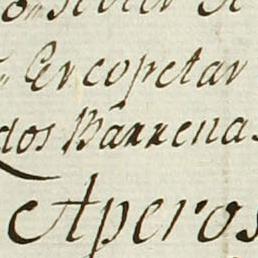 Ercopetar
dos Barrenas
Aperos